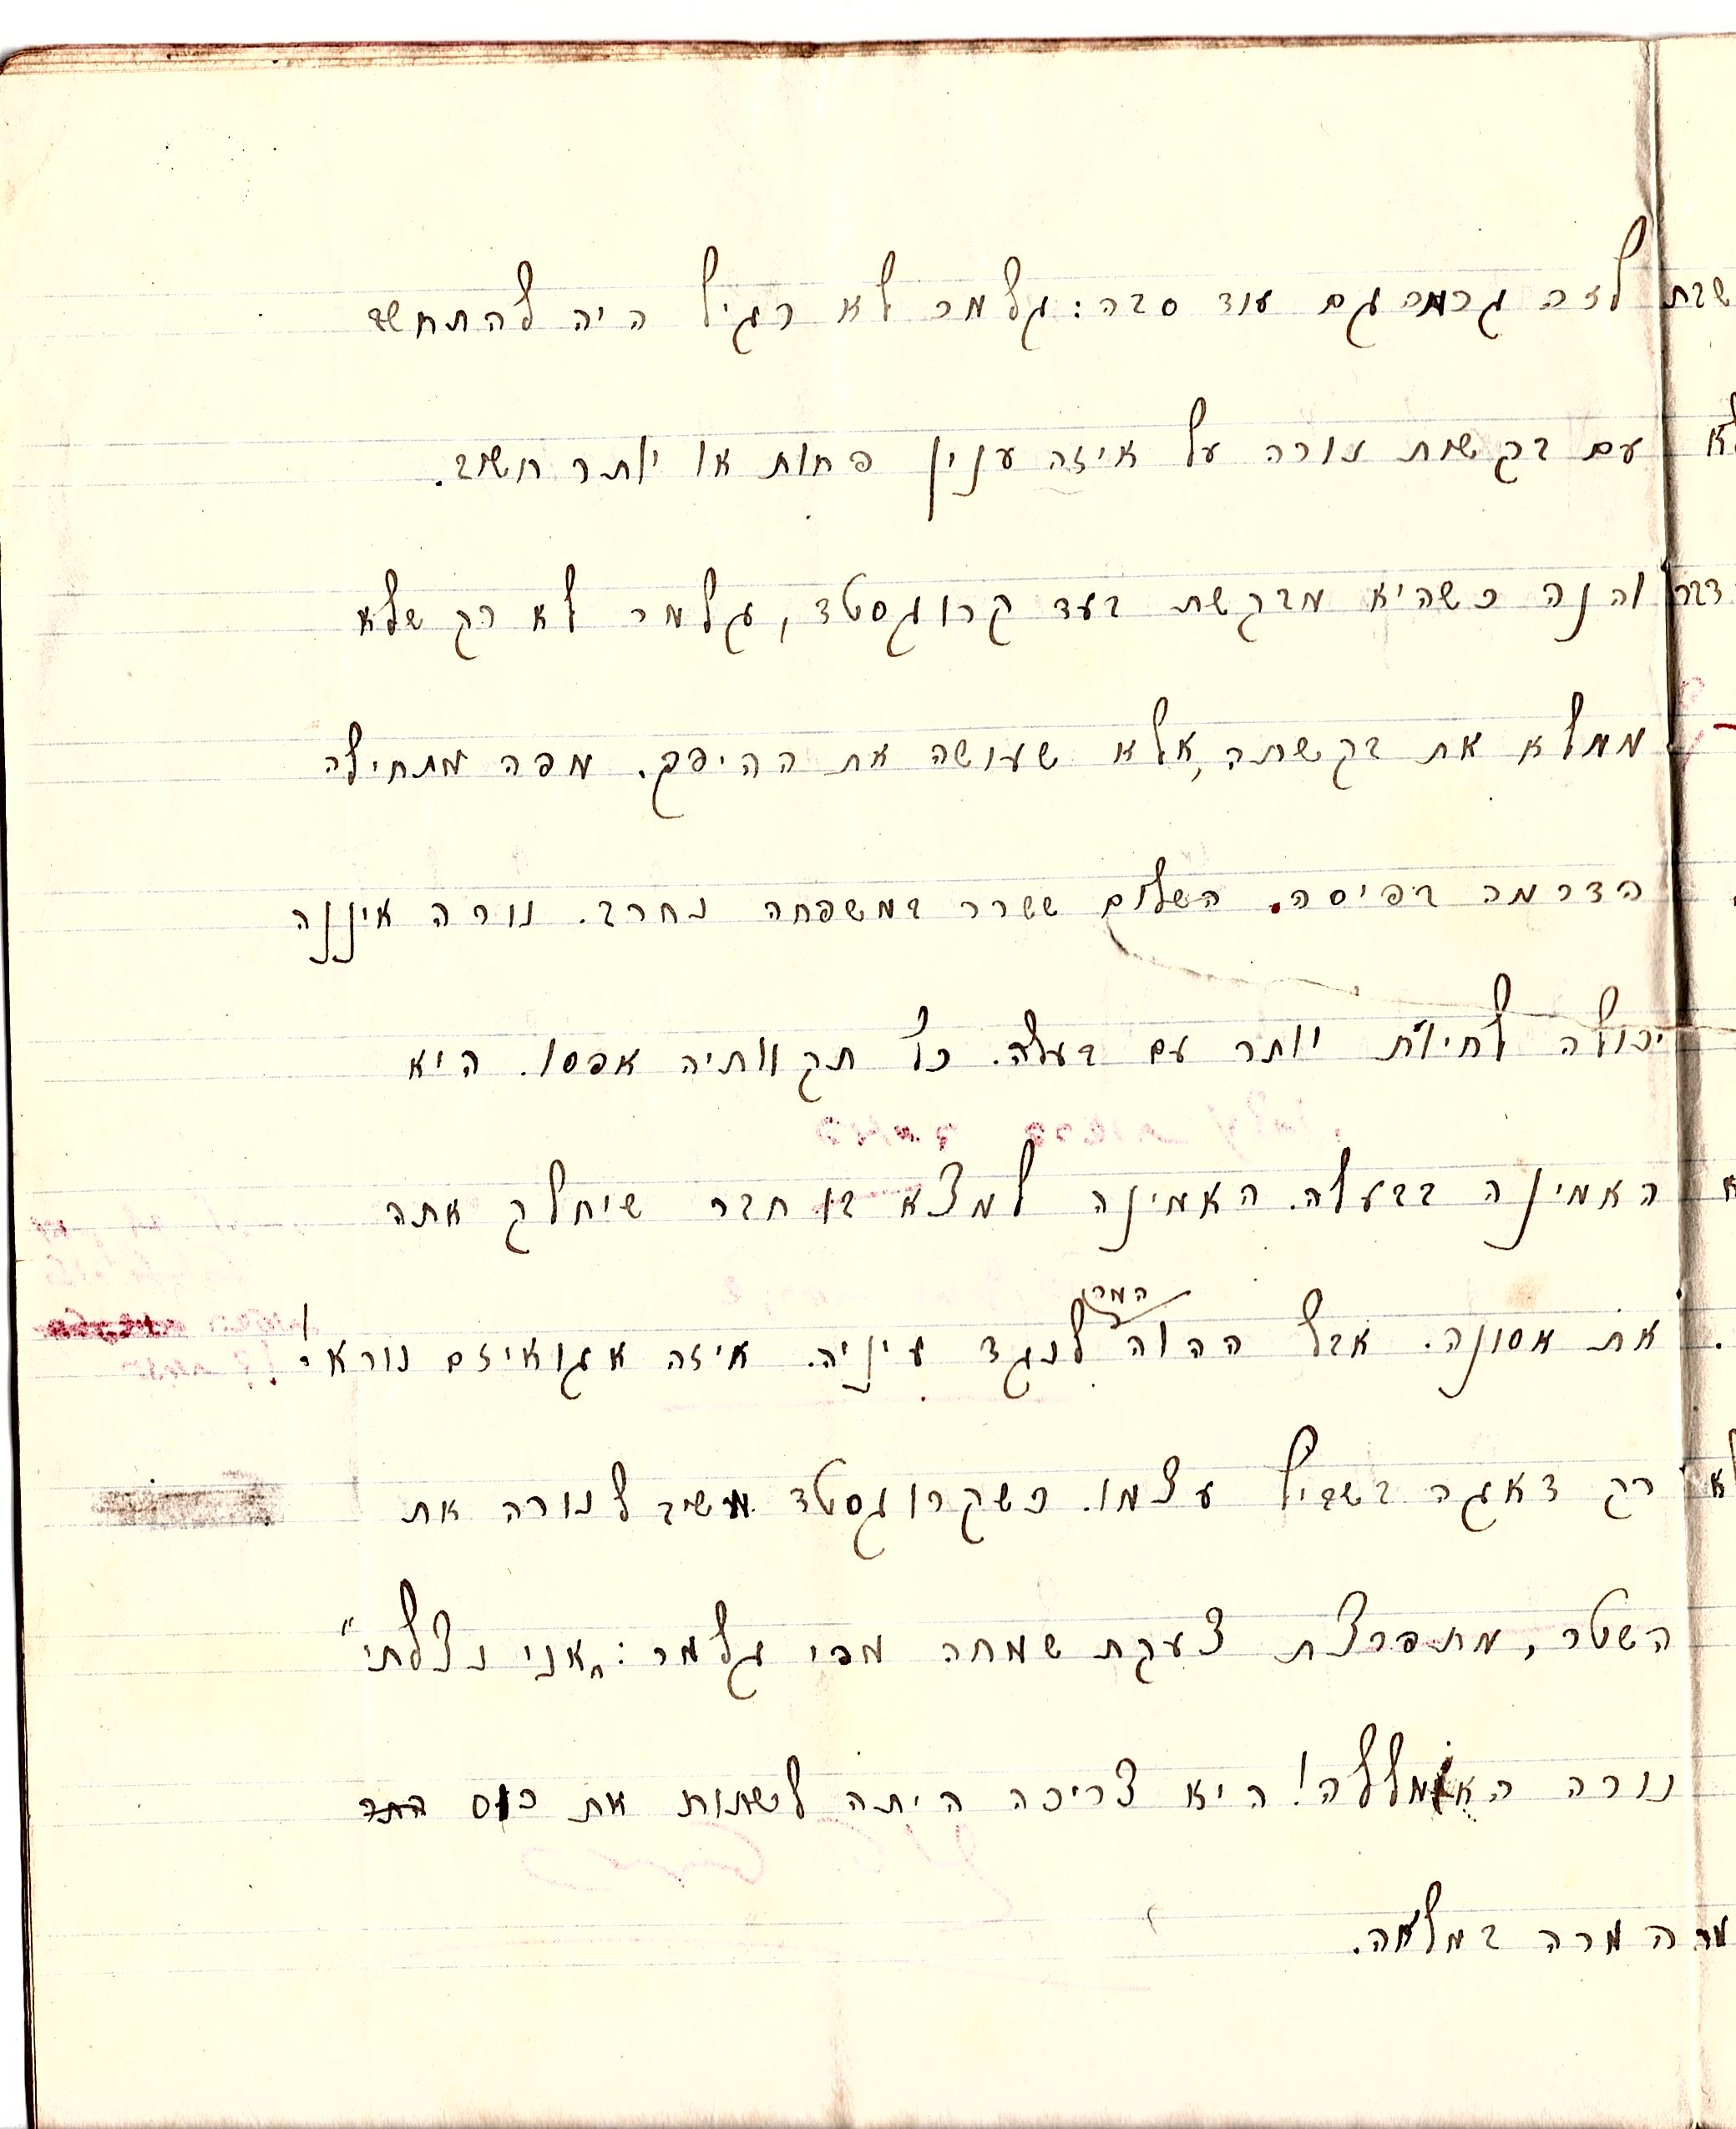 לזה גרמה גם עוד סבה: גלמר לא רגיל היה להתחשב
עם בקשות נורה על איזה ענין פחות או יותר חשוב.
והנה כשהיא מבקשת בעד קרוגסטד, גלמר לא רק שלא
ממלא את בקשתה, אלא שעושה את ההיפך. מפה מתחילה
הדרמה בפיסה. השלום ששרר במשפחה נחרב. נורה איננה
יכולה לחיות יותר עם בעלה. כל תקוותיה אפסו. היא
האמינה בבעלה. האמינה למצא בו חבר שיחלק אתה
את אסונה. אבל ההוה המר לנגד עיניה. איזה אגואיזם נורא!
רק דאגה בשביל עצמו. כשקרוגסטד משיב לנורה את
השטר, מתפרצת צעקת שמחה מפי גלמר: „אני נצלתי"
נורה האמללה! היא צריכה היתה לשתות את כוס
המרה במלאה.